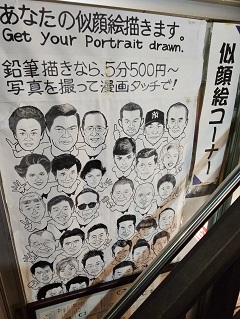 あなたの似顔絵描きます。
Get your Portrait drawn.
鉛筆描きなら、5分500円〜
写真を撮って漫画タッチで!
似顔絵コーナー